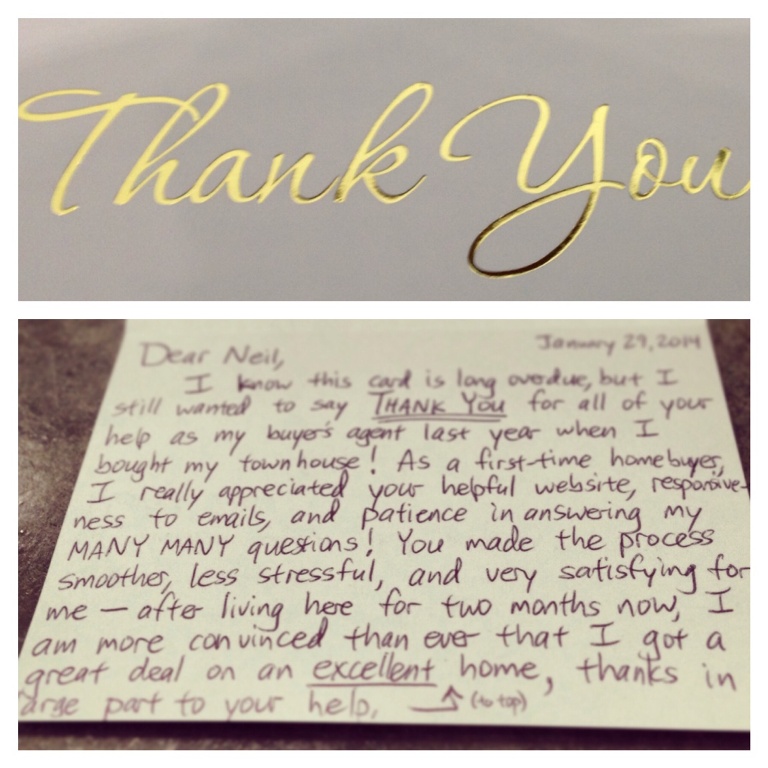 Thank You
January 29, 2014
Dear Neil,
I know this card is long overdue, but I
still wanted to say THANK YOU for all of your
help as my buyer's agent last year when I
bought my townhouse! As a first-time homebuyer,
I really appreciated your helpful website, responsive-
ness to emails, and patience in answering my
MANY MANY questions! You made the process
smoother, less stressful, and very satisfying for
me — after living here for two months now, I
am more convinced than ever that I got a
great deal on an excellent home, thanks in
arge part to your help. (to top)